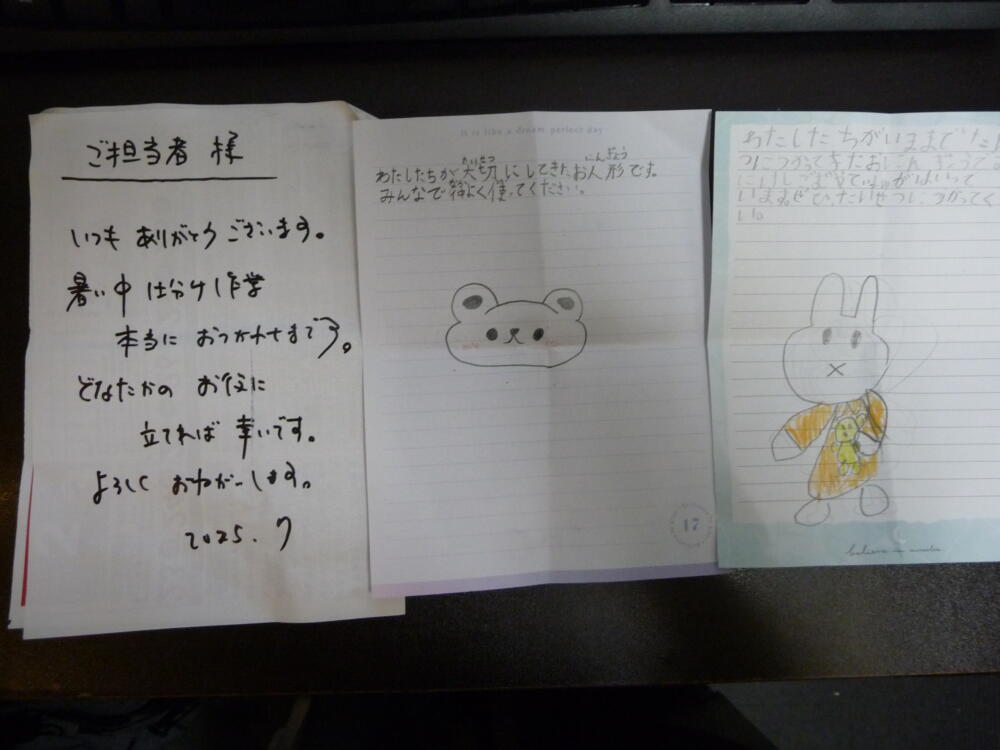 ご担当者 様
いつも ありがとう ございます。
暑い中 仕分け作業
本当に おつかれさまです。
どなたかの お役に
立てれば 幸いです。
よろしく おねがいします。
2025.7
It is like a dream perfect day
たいせつ にんぎょう
わたしたちが 大切にしてきた お人形です。
みんなで 仲よく使ってください。
17
わたしたちがいままでた
つにつかってきたおにんぎょうで
がはいって
います。ぜひ、たいせつに、つかってく
い。
believe in